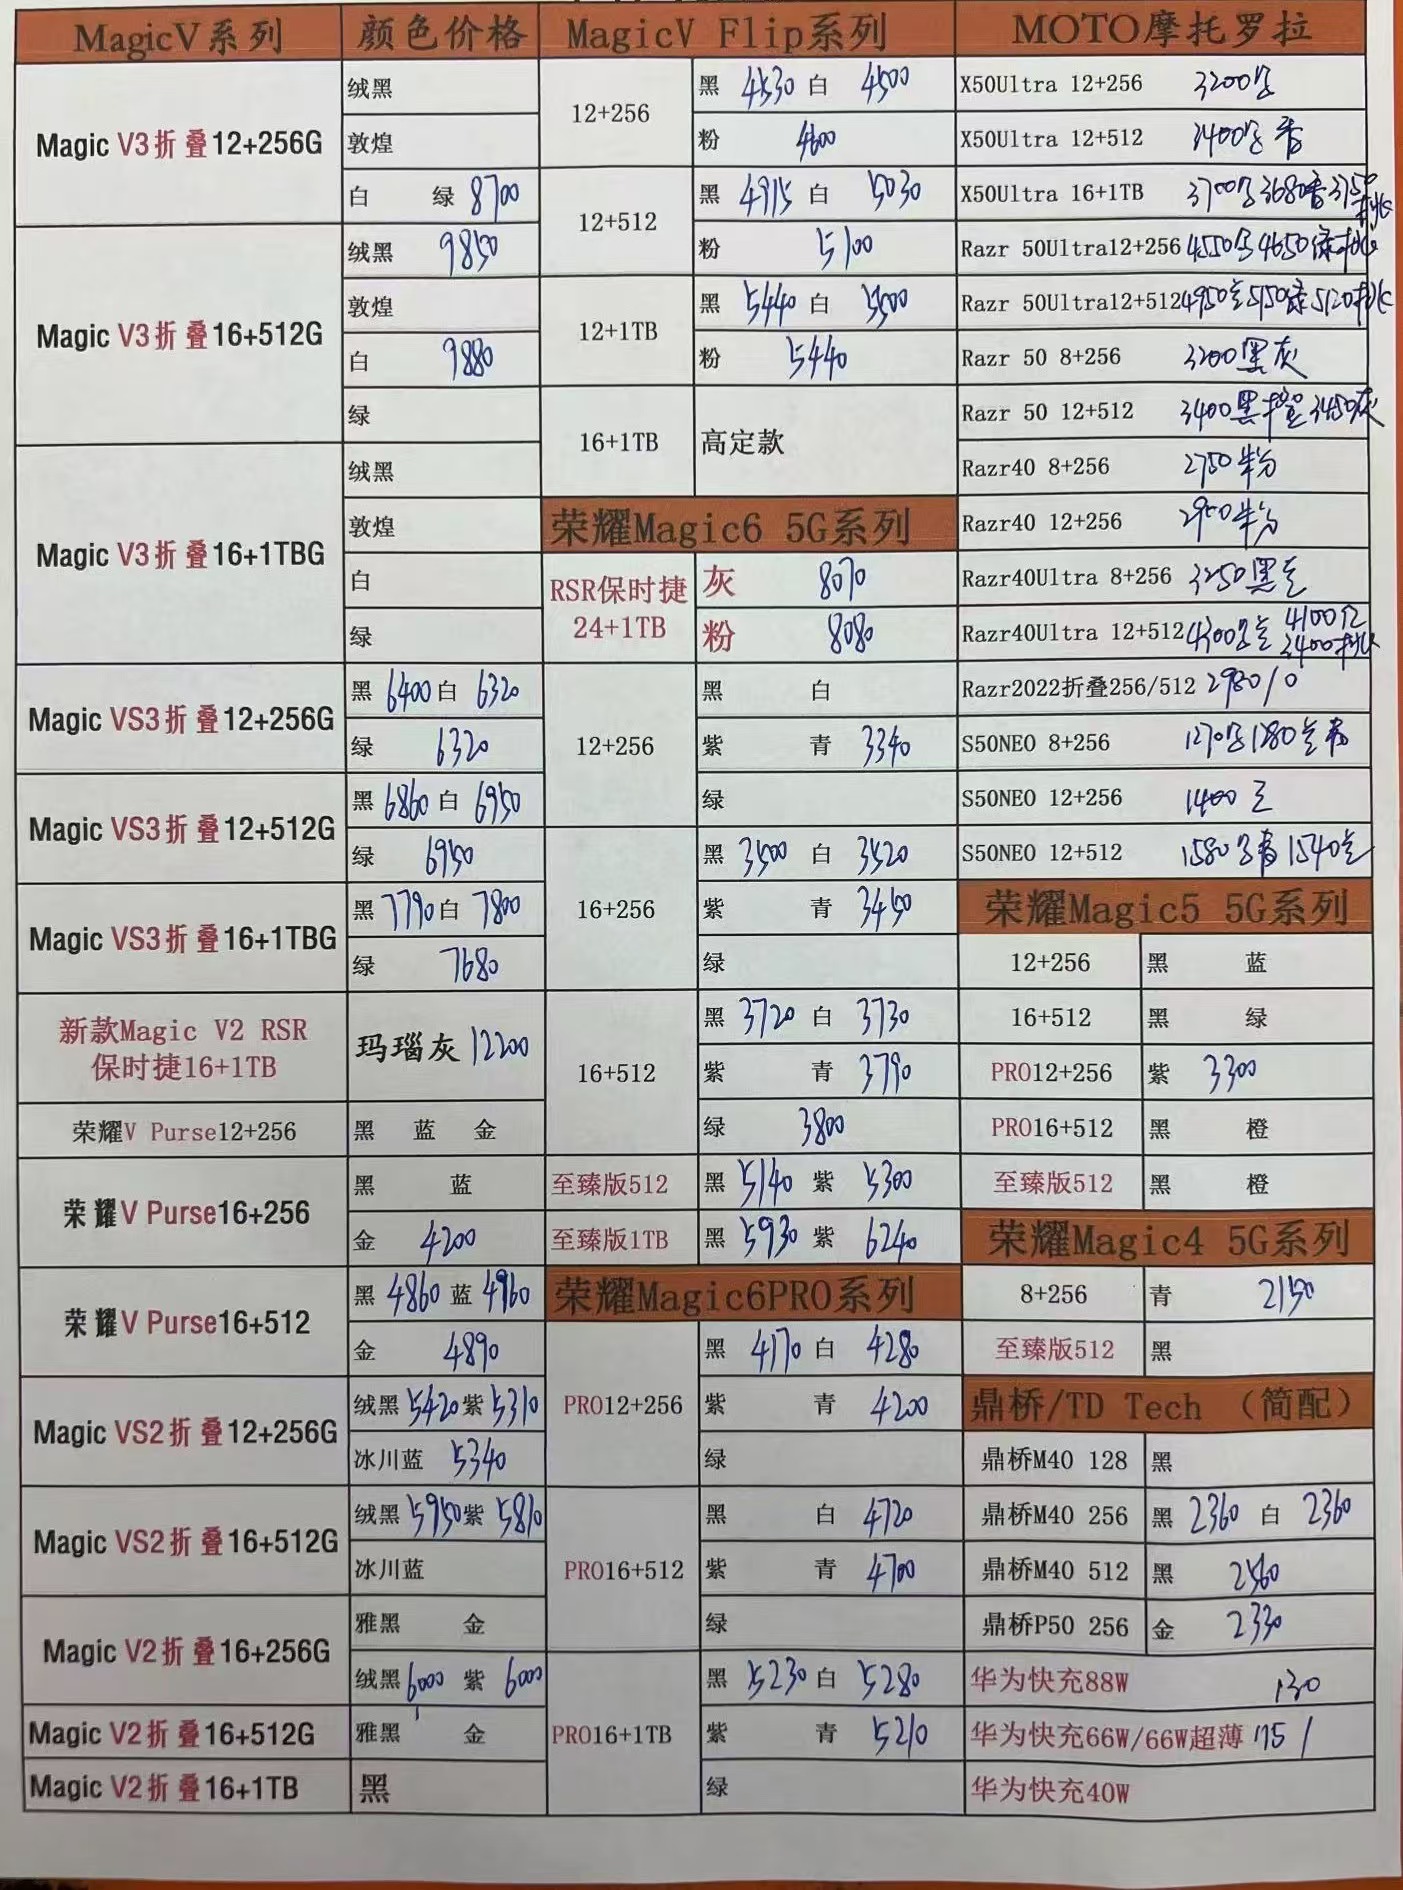 MagicV系列 颜色价格
Magic V3折叠12+256G
绒黑
敦煌
白 绿 8700
Magic V3折叠16+512G
绒黑 9850
敦煌
白 9880
绿
Magic V3折叠16+1TBG
绒黑
敦煌
白
绿
Magic VS3折叠12+256G
黑 6400 白 6320
绿 6320
Magic VS3折叠12+512G
黑 6860 白 6950
绿 6950
Magic VS3折叠16+1TBG
黑 7790 白 7800
绿 7680
新款Magic V2 RSR
保时捷16+1TB
玛瑙灰 12200
荣耀V Purse12+256
黑 蓝 金
荣耀V Purse16+256
黑 蓝
金 4200
荣耀V Purse16+512
黑 4860 蓝 4960
金 4890
Magic VS2折叠12+256G
绒黑 5420 紫 5310
冰川蓝 5340
Magic VS2折叠16+512G
绒黑 5950 紫 5810
冰川蓝
Magic V2折叠16+256G
雅黑 金
绒黑 6000 紫 6000
Magic V2折叠16+512G
雅黑 金
Magic V2折叠16+1TB
黑
MagicV Flip系列
12+256
黑 4530 白 4500
粉 4600
12+512
黑 4915 白 5030
粉 5100
12+1TB
黑 5440 白 5500
粉 5440
16+1TB
高定款
荣耀Magic6 5G系列
RSR保时捷
24+1TB
灰 8070
粉 8080
12+256
黑 白
紫 青 3340
绿
16+256
黑 3500 白 3520
紫 青 3450
绿
16+512
黑 3720 白 3730
紫 青 3790
绿 3800
至臻版512
黑 5140 紫 5300
至臻版1TB
黑 5930 紫 6240
荣耀Magic6PRO系列
PRO12+256
黑 4170 白 4280
紫 青 4200
绿
PRO16+512
黑 白 4720
紫 青 4700
绿
PRO16+1TB
黑 5230 白 5280
紫 青 5210
绿
MOTO摩托罗拉
X50Ultra 12+256 3200
X50Ultra 12+512 3400
X50Ultra 16+1TB 3700 3680 3750
Razr 50Ultra12+256 4550 4650绿
Razr 50Ultra12+512 4950 5150绿 5120
Razr 50 8+256 3200黑灰
Razr 50 12+512 3400黑橙 3450灰
Razr40 8+256 2750粉
Razr40 12+256 2950粉
Razr40Ultra 8+256 3250黑
Razr40Ultra 12+512 4100
3400
Razr2022折叠256/512 2980/0
S50NEO 8+256 1270 1280
S50NEO 12+256 1400
S50NEO 12+512 1580 1540
荣耀Magic5 5G系列
12+256 黑 蓝
16+512 黑 绿
PRO12+256 紫 3300
PRO16+512 黑 橙
至臻版512 黑 橙
荣耀Magic4 5G系列
8+256 青 2150
至臻版512 黑
鼎桥/TD Tech （简配）
鼎桥M40 128 黑
鼎桥M40 256 黑 2360 白 2360
鼎桥M40 512 黑 2560
鼎桥P50 256 金 2330
华为快充88W 130
华为快充66W/66W超薄 75 /
华为快充40W